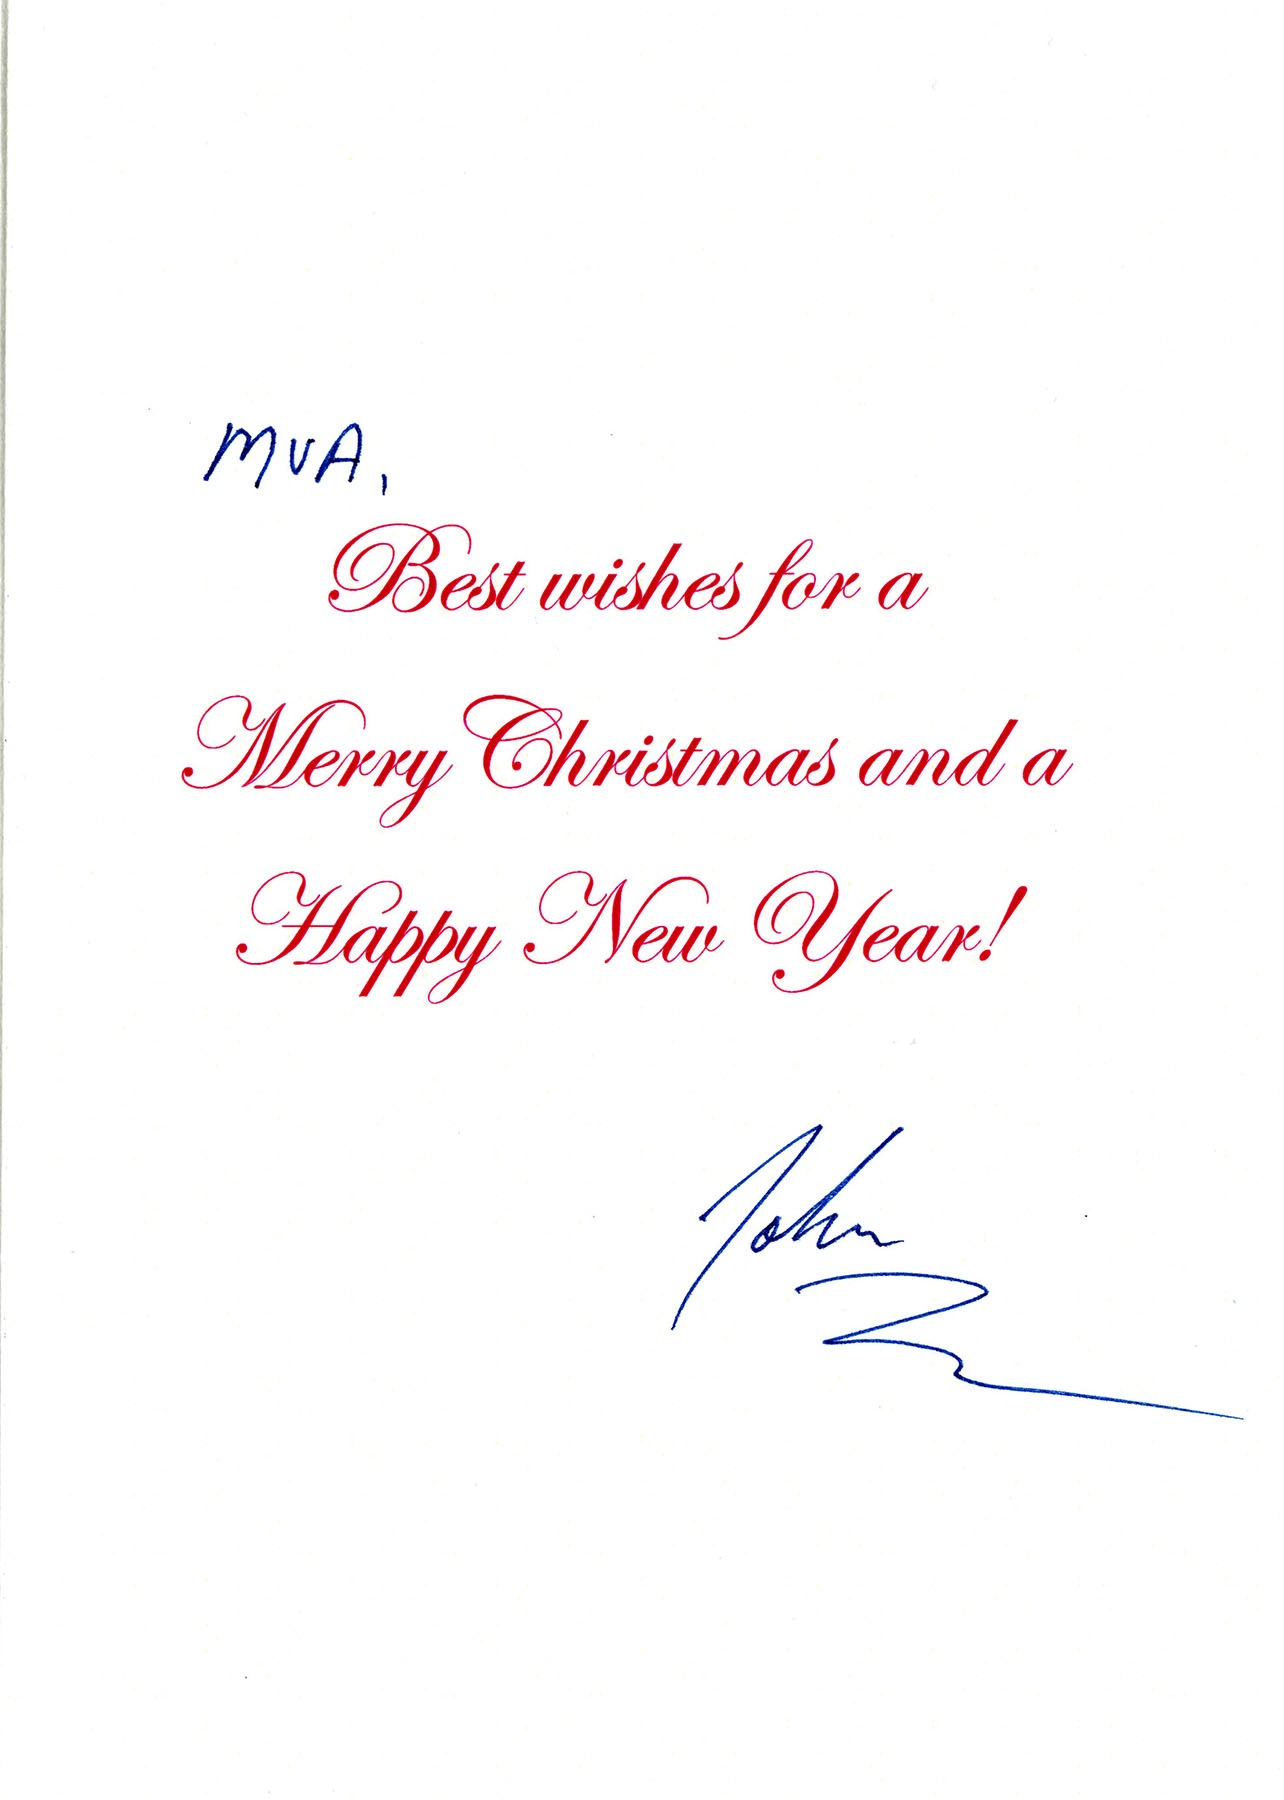 MVA,
Best wishes for a
Merry Christmas and a
Happy New Year!
John